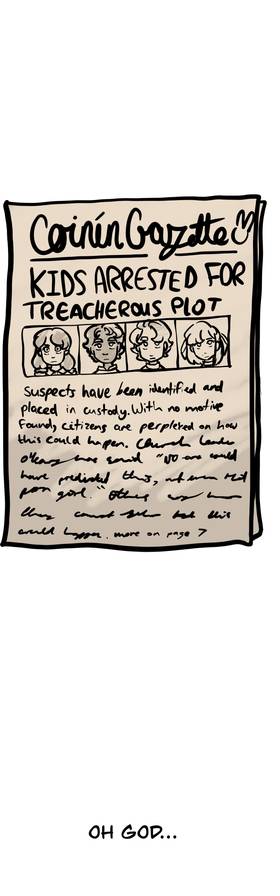 Coinín Gazette
KIDS ARRESTED FOR
TREACHEROUS PLOT
Suspects have been identified and
placed in custody. With no motive
found, citizens are perplexed on how
this could happen. Church leader
O'Leary has said "No one could
have predicted this, not even that
poor girl." Others
they cannot this
could happen. more on page 7
OH GOD...